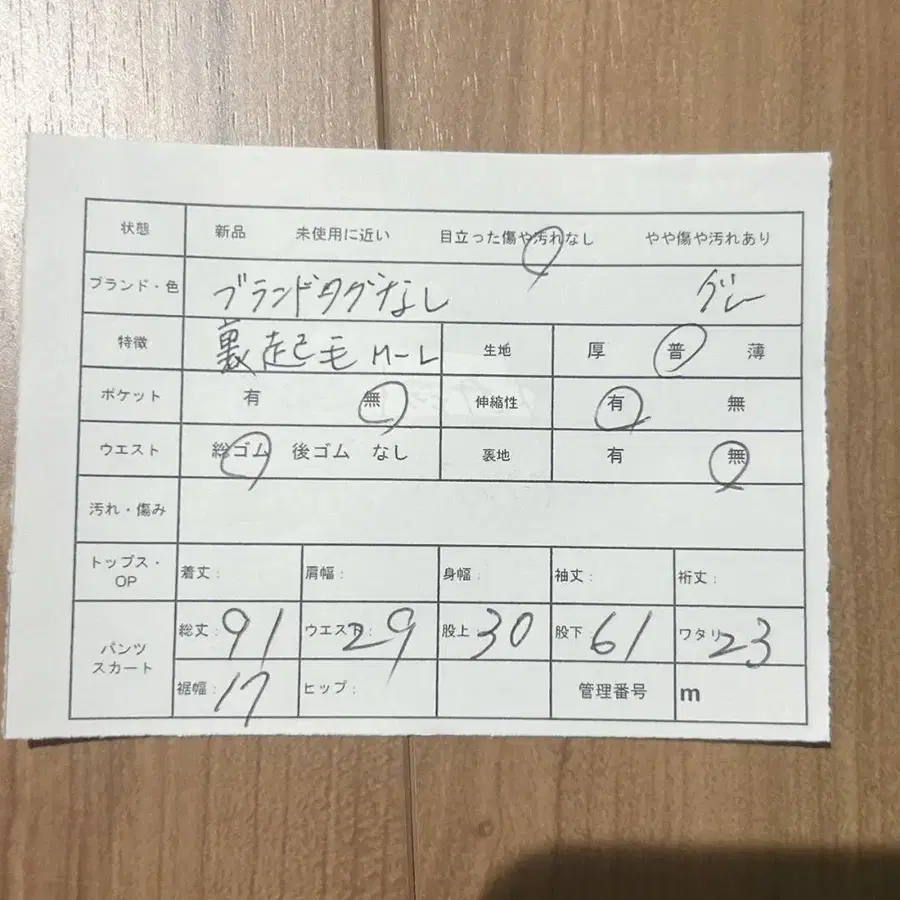 状態 新品 未使用に近い 目立った傷や汚れなし やや傷や汚れあり
ブランド・色 ブランドタグなし グレー
特徴 裏起毛 M-L 生地 厚 普 薄
ポケット 有 無 伸縮性 有 無
ウエスト 総ゴム 後ゴム なし 裏地 有 無
汚れ・傷み
トップス・OP 着丈: 肩幅: 身幅: 袖丈: 裄丈:
パンツ スカート 総丈: 91 ウエスト: 29 股上 30 股下 61 ワタリ 23
裾幅: 17 ヒップ: 管理番号 m